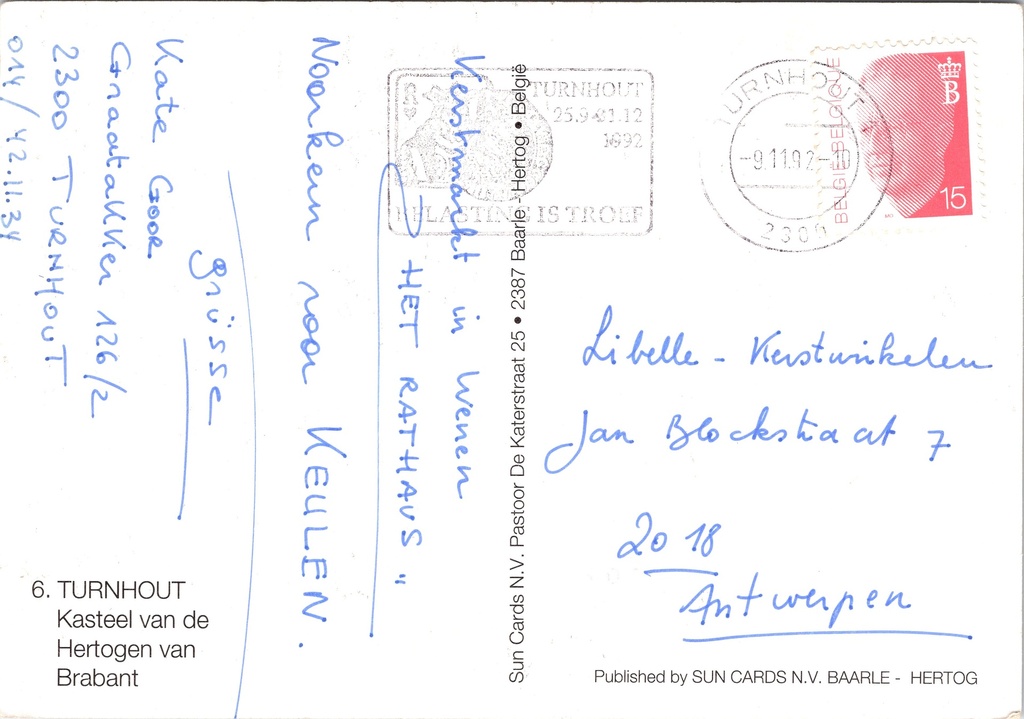 Kerstmarkt in Wenen
" HET RATHAUS "
Voorkeur voor KEULEN.
Grüsse
Kate Goor
Graatakker 126/2
2300 TURNHOUT
014/42.11.34
6. TURNHOUT
Kasteel van de
Hertogen van
Brabant
Sun Cards N.V. Pastoor De Katerstraat 25 • 2387 Baarle-Hertog • België
TURNHOUT
25.9-31.12
1992
BELASTING IS TROEF
TURNHOUT
-9.11.92-10
2300
BELGIË-BELGIQUE
B
15
Libelle - Kerstwinkelen
Jan Blockstraat 7
2018
Antwerpen
Published by SUN CARDS N.V. BAARLE - HERTOG